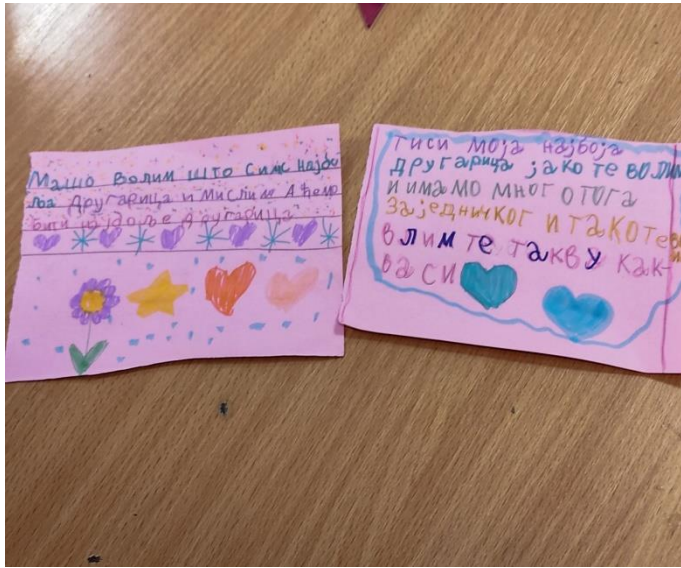 Машо Волим што Симс најбо
ља Другарица и мислим да ћемо
бити најбоље другарица
тиси моја најбоја
другарица јако те волим
и имамо много тога
Заједничког и такоте
влим те такву как-
ва си